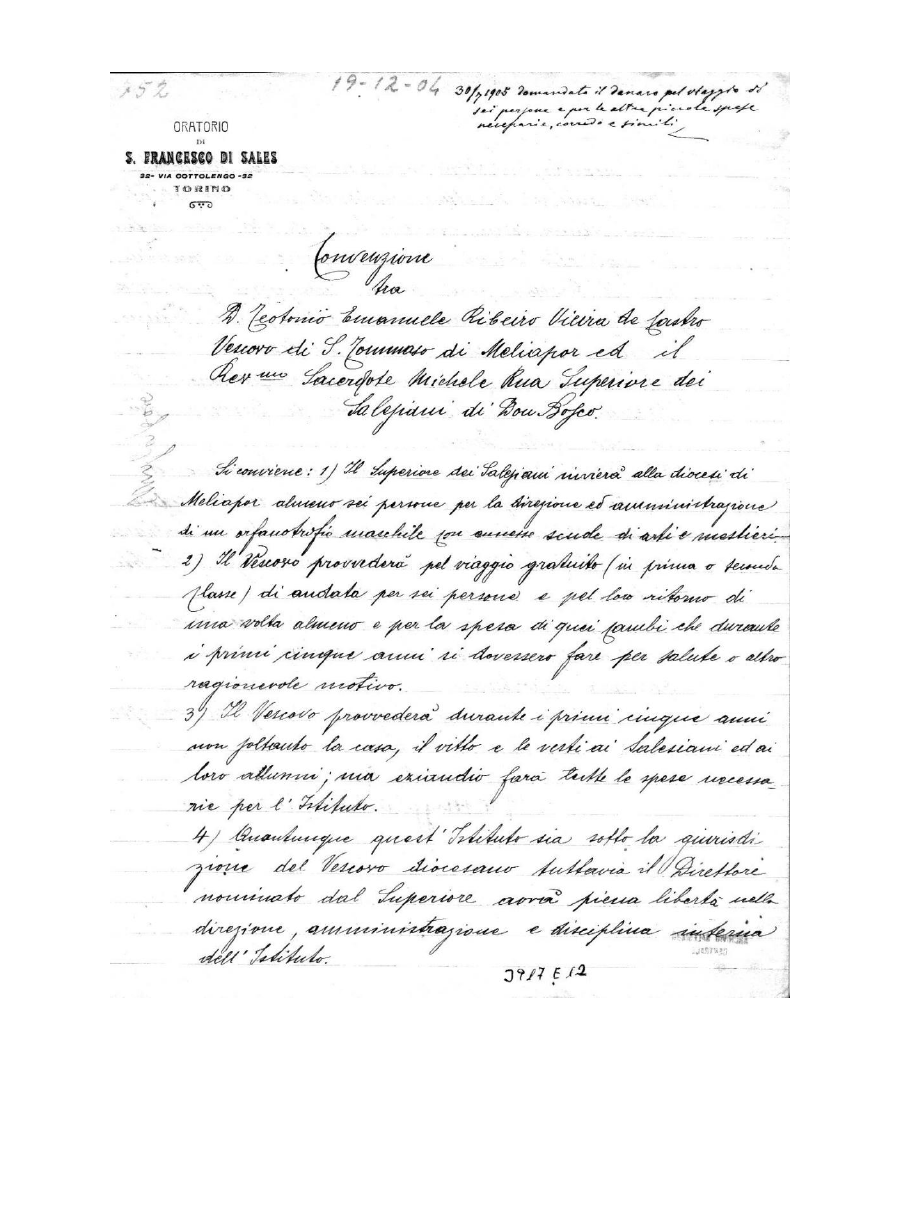 152
19-12-04
30/7 1905 domandato il denaro pel viaggio di
sei persone e per le altre piccole spese
necessarie, corredo e simili
ORATORIO
DI
S. FRANCESCO DI SALES
32- VIA COTTOLENGO -32
TORINO
Convenzione
tra
D. Teotonio Emanuele Ribeiro Vieira de Castro
Vescovo di S. Tommaso di Meliapor ed il
Rev mo Sacerdote Michele Rua Superiore dei
Salesiani di Don Bosco.
Si conviene: 1) Il Superiore dei Salesiani invierà alla diocesi di
Meliapor almeno sei persone per la direzione ed amministrazione
di un orfanotrofio maschile con annesse scuole di arti e mestieri.
2) Il Vescovo provvederà pel viaggio gratuito (in prima o seconda
classe) di andata per sei persone e pel loro ritorno di
una volta almeno e per la spesa di quei cambi che durante
i primi cinque anni si dovessero fare per salute o altro
ragionevole motivo.
3) Il Vescovo provvederà durante i primi cinque anni
non soltanto la casa, il vitto e le vesti ai Salesiani ed ai
loro allunni; ma eziandio farà tutte le spese necessa-
rie per l'Istituto.
4) Quantunque quest'Istituto sia sotto la giurisdi
zione del Vescovo diocesano tuttavia il Direttore
nominato dal Superiore avrà piena libertà nella
direzione, amministrazione e disciplina interna
dell'Istituto.
3917 E 12